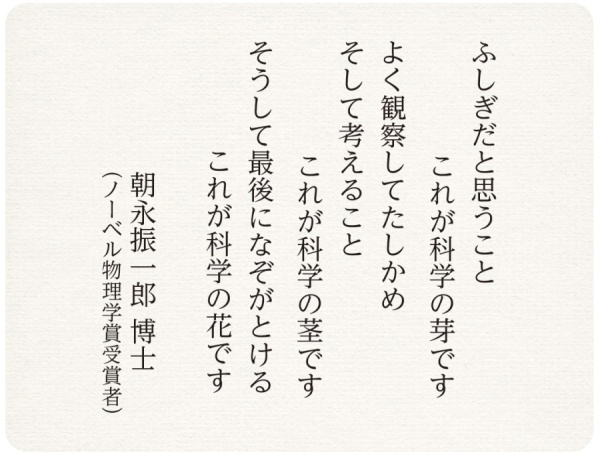 ふしぎだと思うこと
これが科学の芽です
よく観察してたしかめ
そして考えること
これが科学の茎です
そうして最後になぞがとける
これが科学の花です
朝永振一郎 博士
（ノーベル物理学賞受賞者）